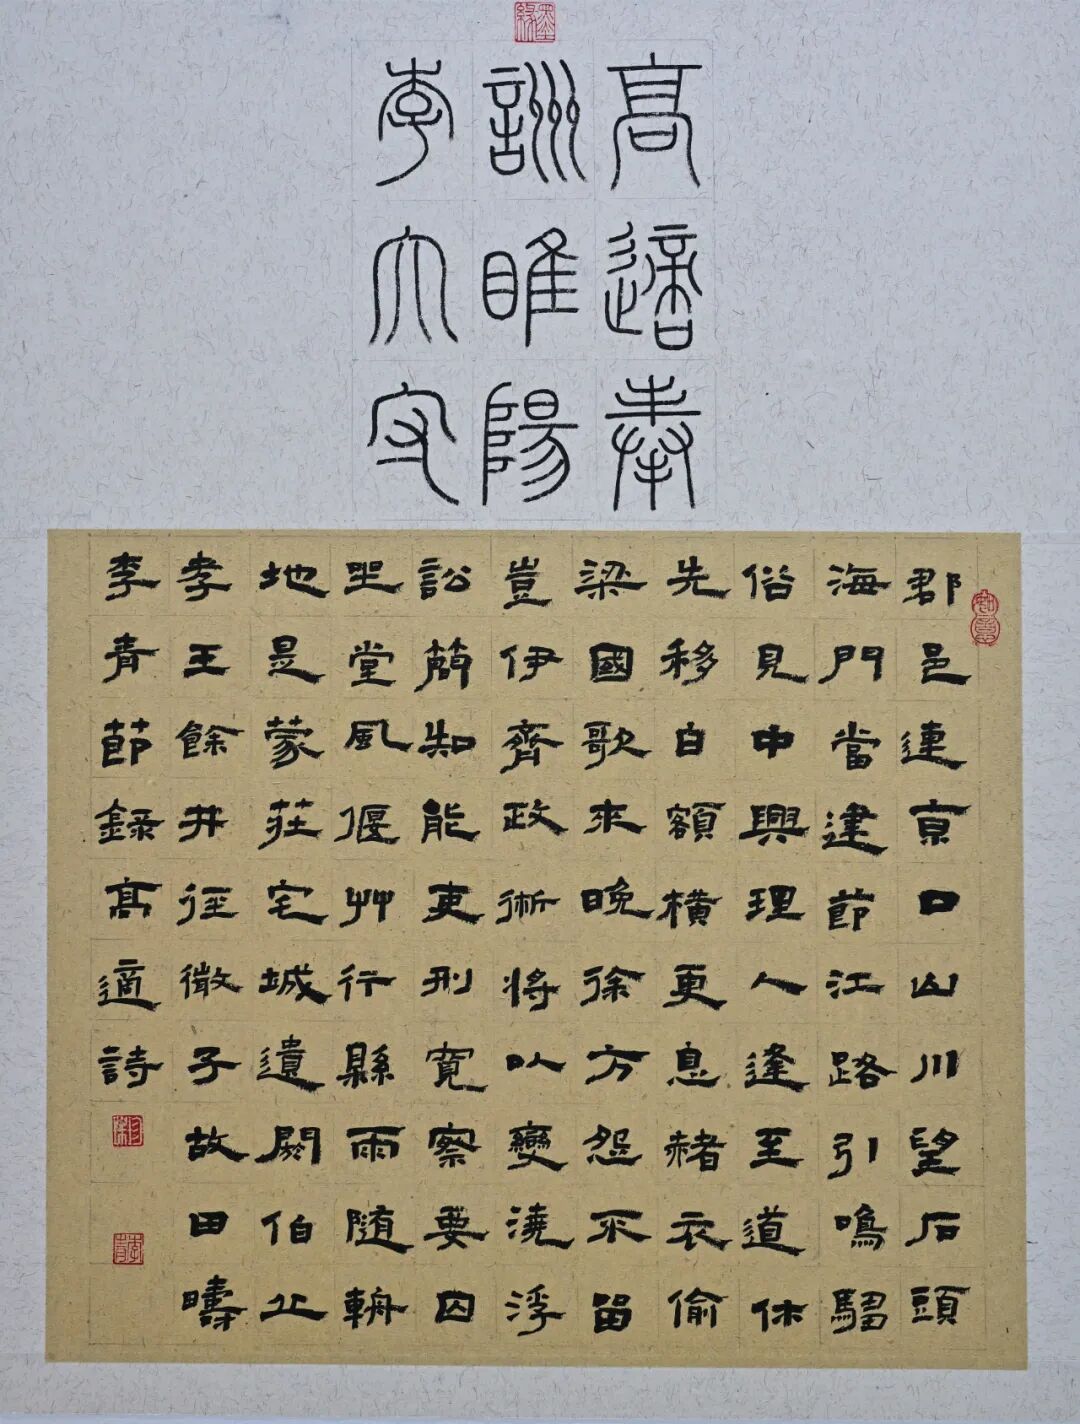 高適奉
詶睢陽
李大守
郡邑連京口山川望石頭
海門當建節江路引鳴騶
俗見中興理人逢至道休
先移白額橫更息赭衣偷
梁國歌來晚徐方怨不留
豈伊齊政術將以變澆浮
訟簡知能吏刑寬察要囚
坐堂風偃艸行縣雨隨輈
地是蒙莊宅城遺閼伯丘
孝王餘井徑微子故田疇
李青節錄高適詩
墨緣
李青